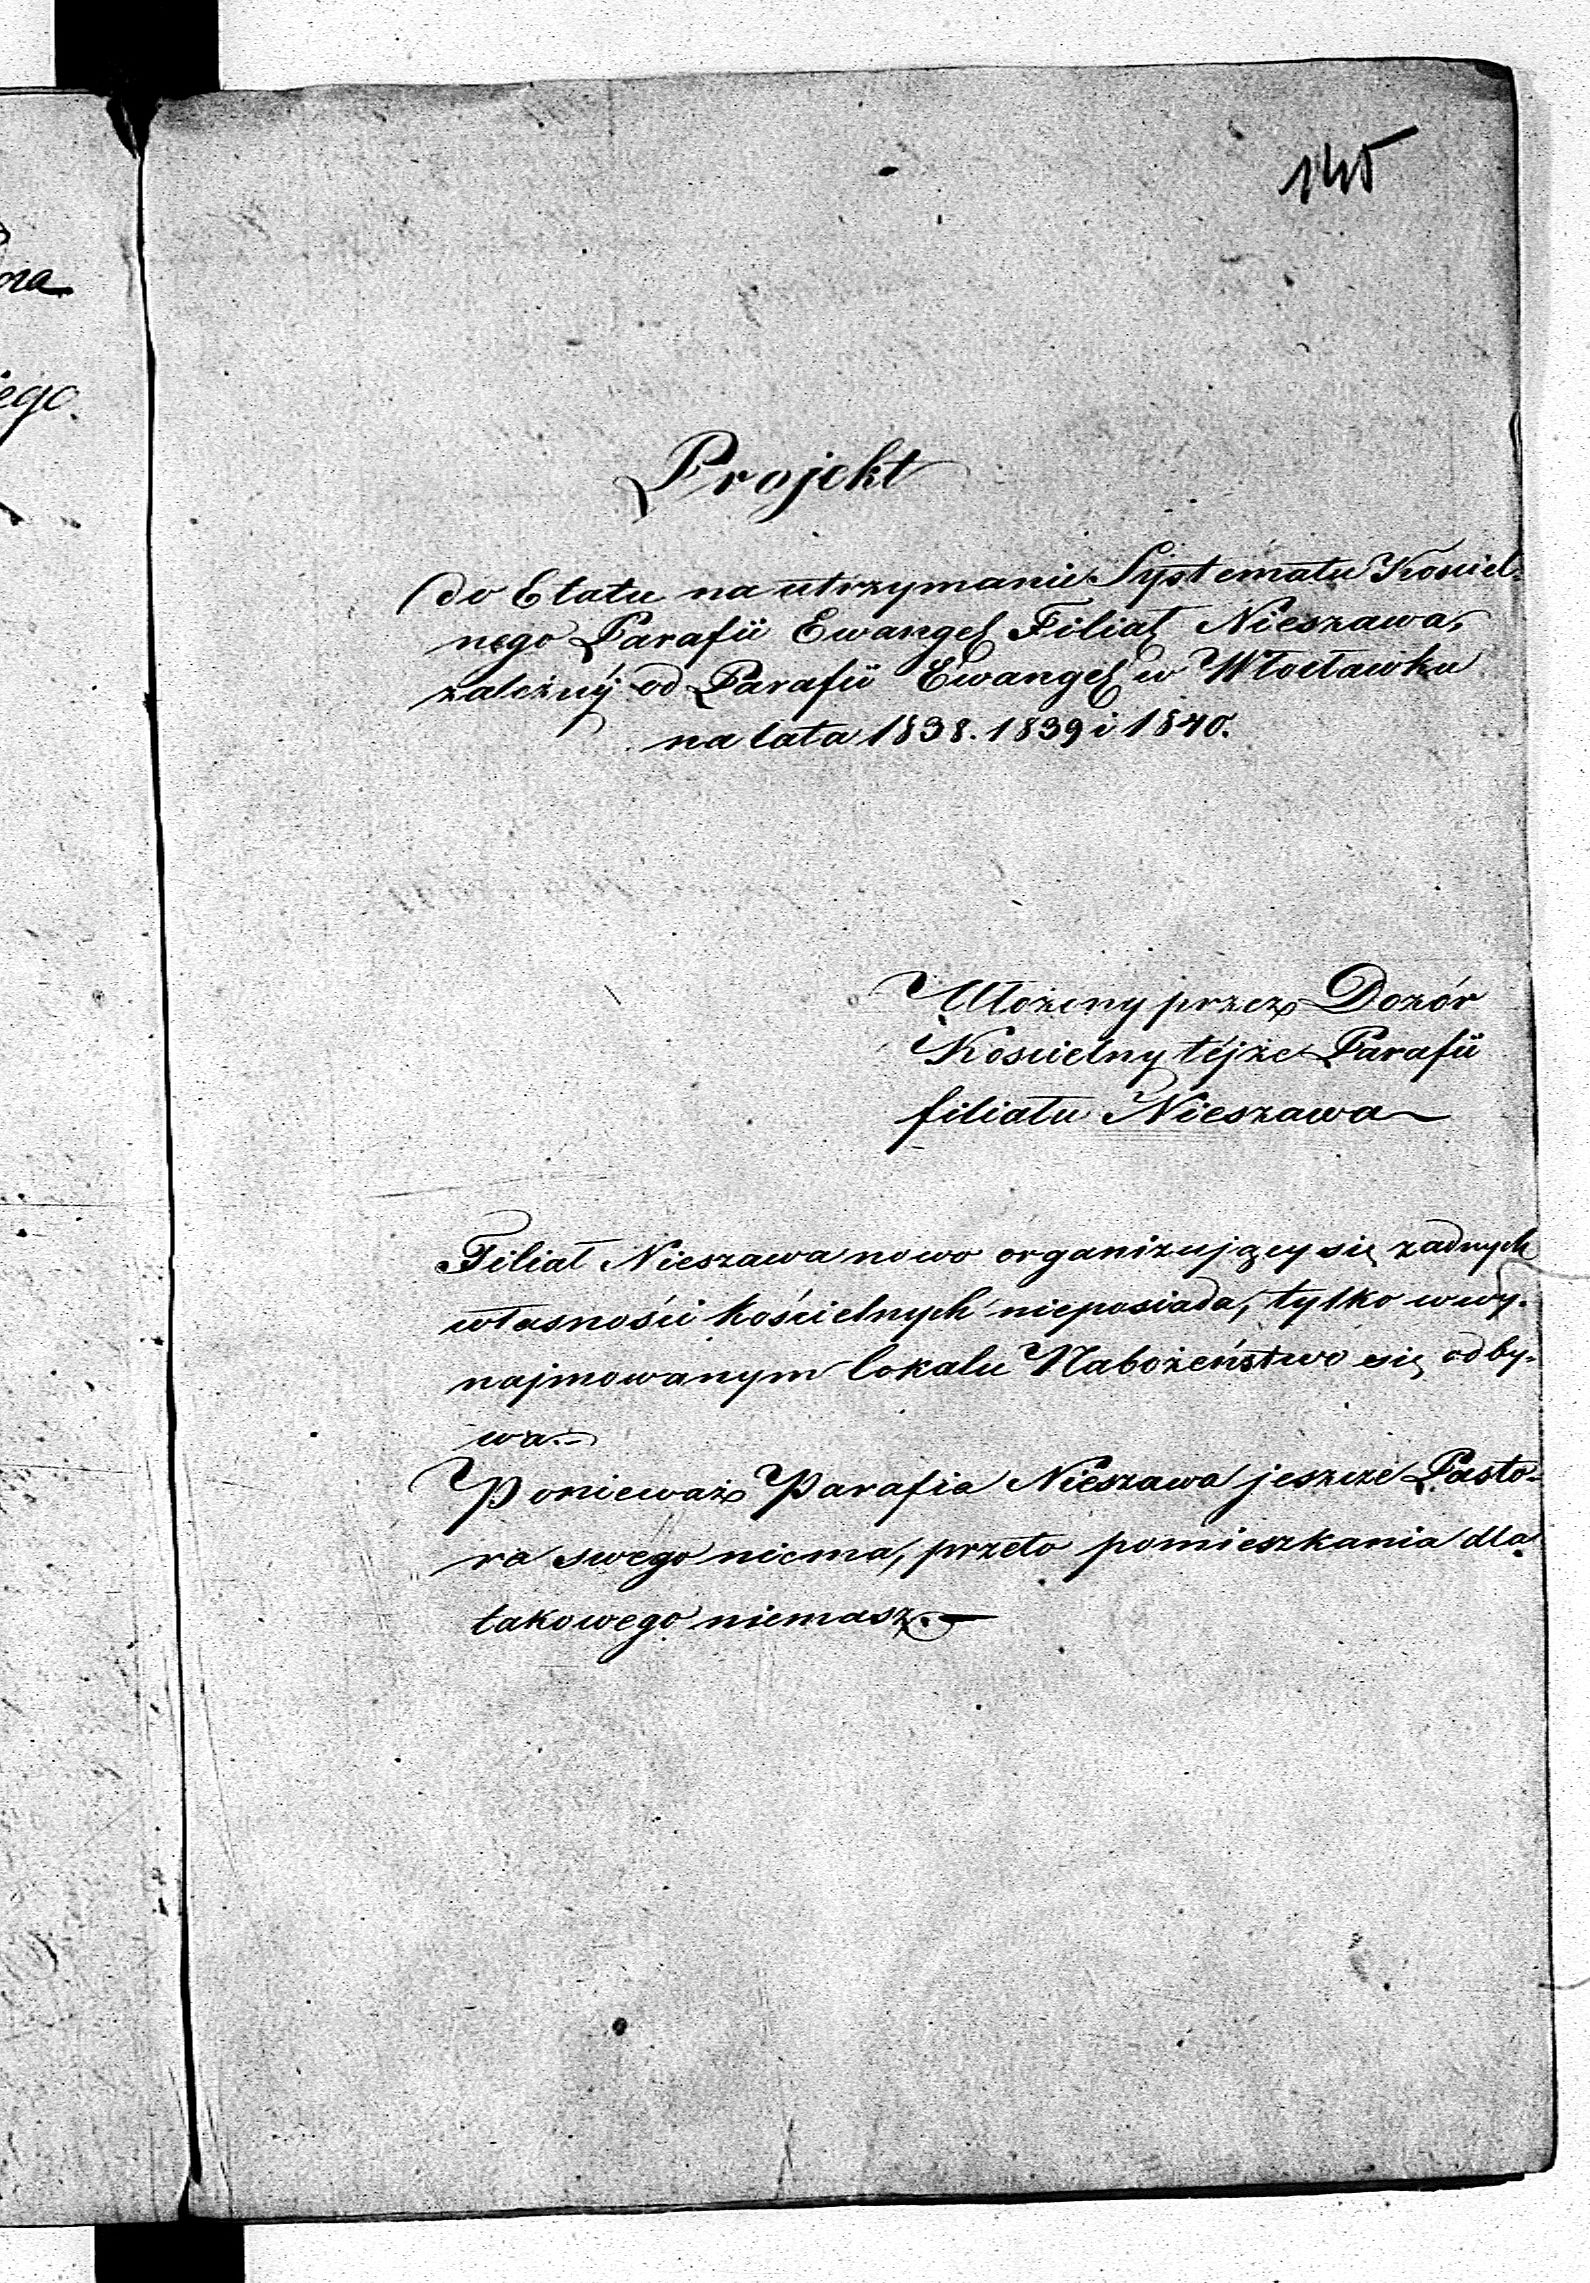 145
Projekt
do Etatu na utrzymanie Systematu Kościel-
nego Parafii Ewangel Filiał Nieszawa,
zależnÿ od Parafii Ewangel w Włocławku
na lata 1838. 1839 i 1840.
Ułożony przez Dozór
Kościelny tejże Parafii
filiału Nieszawa
Filiał Nieszawa nowo organizujący się żadnych
własności kościelnych nieposiada, tylko w wy-
najmowanym lokalu Nabożeństwo się odby-
wa.
Ponieważ Parafia Nieszawa jeszcze Pasto-
ra swego niema, przeto pomieszkania dla
takowego niemasz.